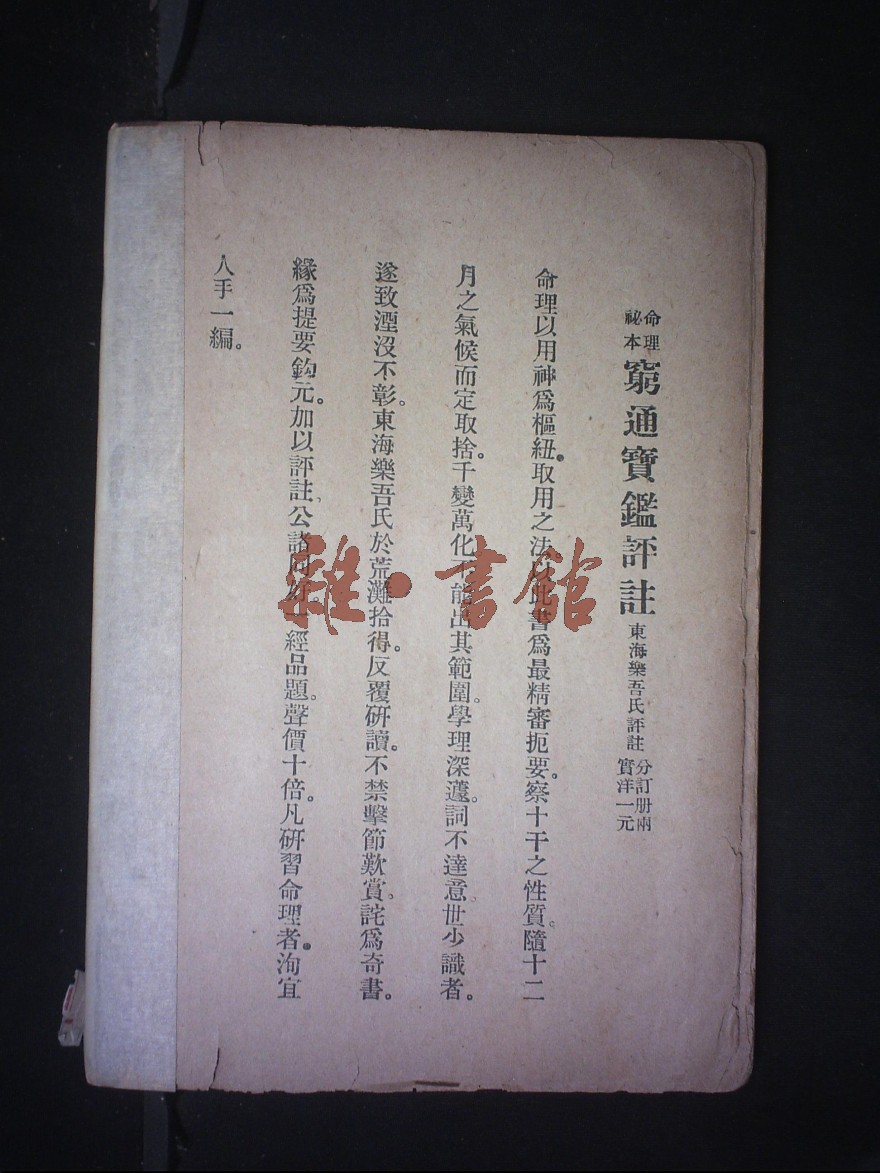 命理
祕本
窮通寶鑑評註
東海樂吾氏評註
分訂册兩
實洋一元
命理以用神爲樞紐。取用之法以此書爲最精審扼要。察十干之性質。隨十二
月之氣候而定取捨。千變萬化不能出其範圍。學理深邃。詞不達意。世少識者。
遂致湮沒不彰。東海樂吾氏於荒灘拾得。反覆研讀。不禁擊節歎賞。詫爲奇書。
緣爲提要鈎元。加以評註。公諸同好。一經品題。聲價十倍。凡研習命理者。洵宜
人手一編。
雜·書館